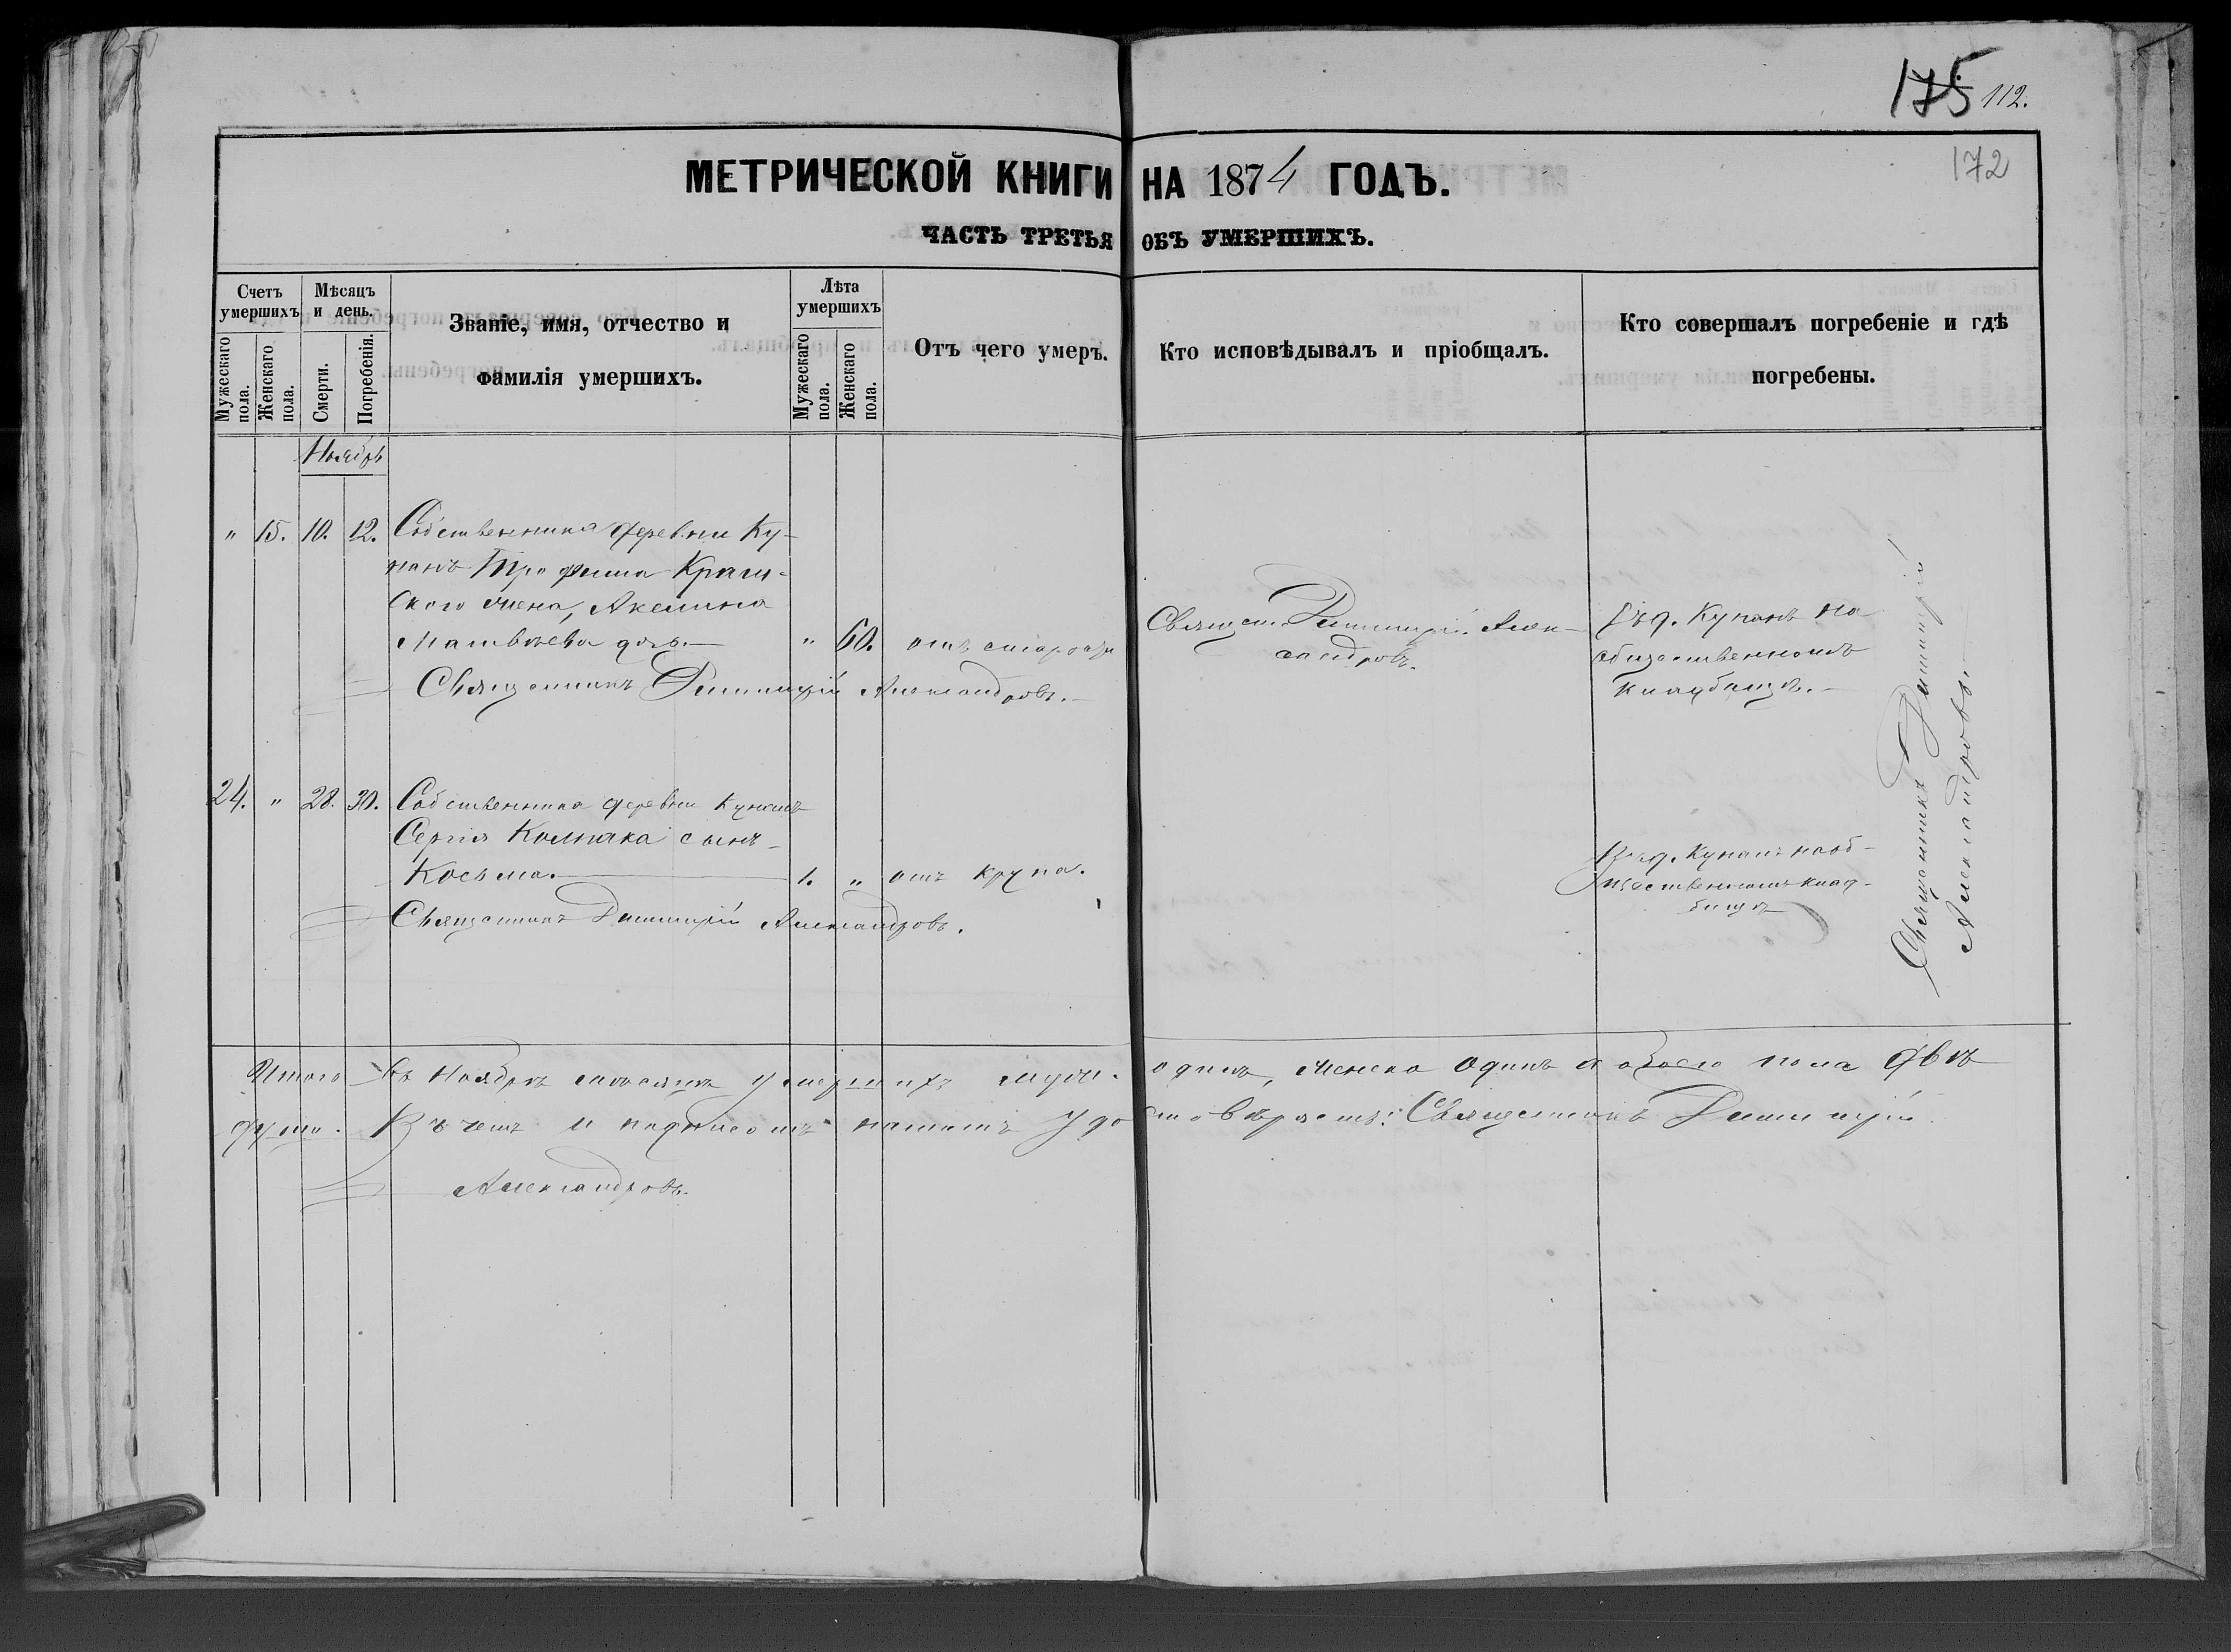 175 112.
172
МЕТРИЧЕСКОЙ КНИГИ НА 1874 ГОДЪ.
ЧАСТЬ ТРЕТЬЯ ОБЪ УМЕРШИХЪ.
Счетъ умершихъ.
Мужескаго пола.
Женскаго пола.
Мѣсяцъ и день.
Смерти.
Погребенія.
Званіе, имя, отчество и
фамилія умершихъ.
Лѣта умершихъ
Мужескаго пола.
Женскаго пола.
Отъ чего умеръ.
Кто исповѣдывалъ и пріобщалъ.
Кто совершалъ погребеніе и гдѣ
погребены.
Ноябрь
" 15. 10. 12. Собственника деревни Ку-
нанъ Трофима
ского жена, Акелина
Матвѣева дочь. " 60. отъ старости
Священ. Димитрій Алек-
сандровъ.
Въ д. Кунанъ на
общественномъ
кладбищѣ.
Священникъ Димитрій Александровъ.
24. " 28. 30. Собственника деревни Кунанъ
Сергія Колпака сынъ
Косьма. 1. " отъ крупа.
Въ д. Кунанъ на об-
щественномъ клад-
бищѣ
Священникъ Димитрій Александровъ.
Священникъ Димитрій
Александровъ.
Итого въ Ноябрѣ мѣсяцѣ умершихъ муж. одинъ, женска одинъ а обоего пола двѣ
души. Въ чемъ и подписомъ нашимъ удостовѣряемъ: Священникъ Димитрій
Александровъ.